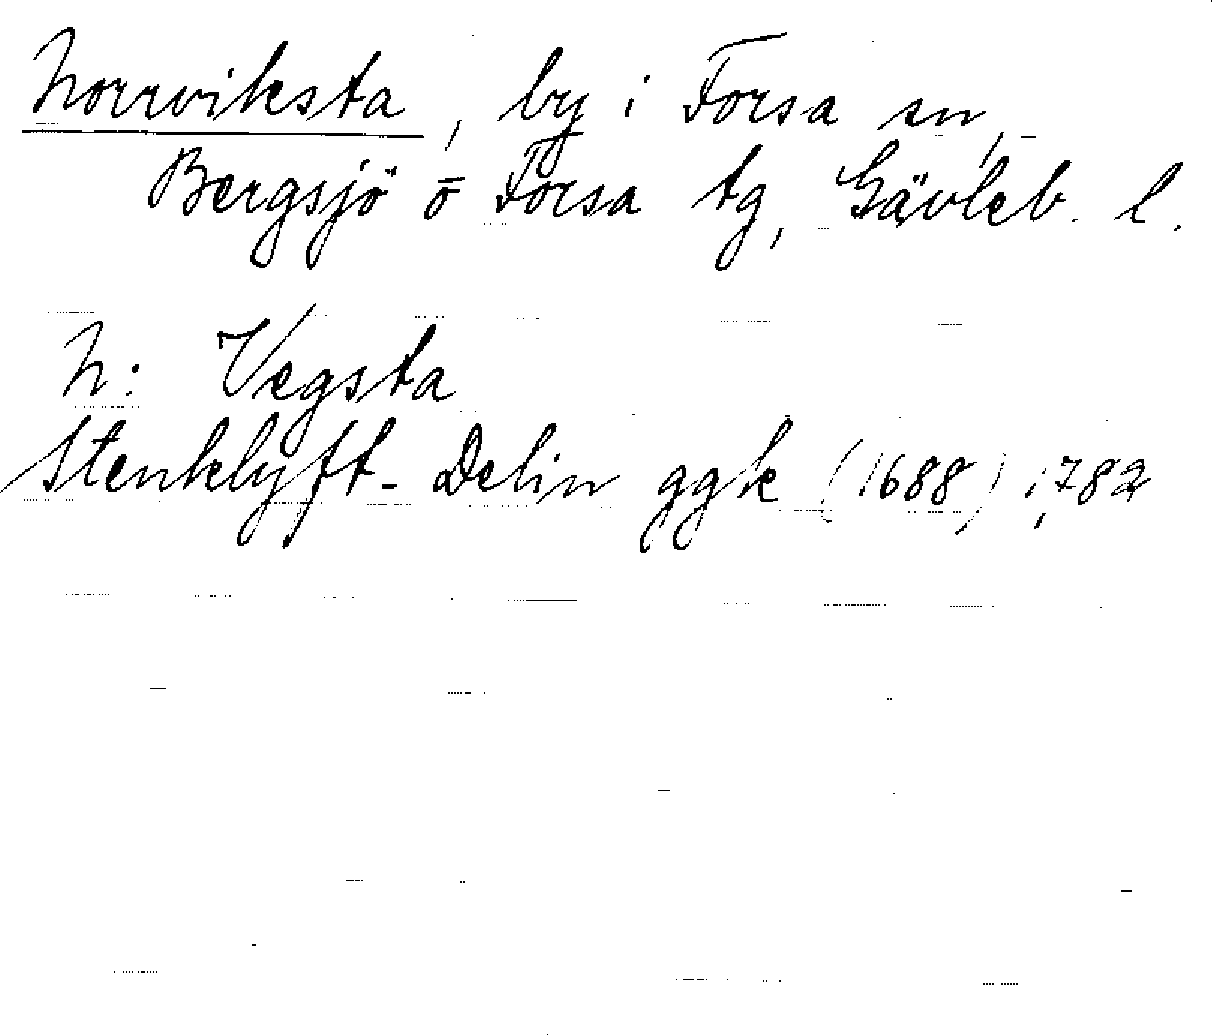 Norrviksta, by i Forsa sn,
Bergsjö o Forsa tg, Gävleb. l.
N: Vegsta
Stenklyft-Delin ggk (1688), 782